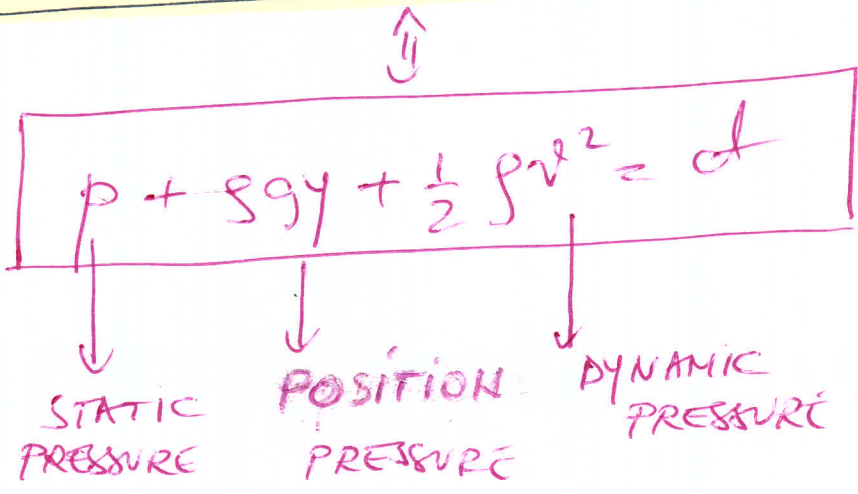 ⇕
p + ρgy + ½ ρv² = ct
STATIC PRESSURE
POSITION PRESSURE
DYNAMIC PRESSURE